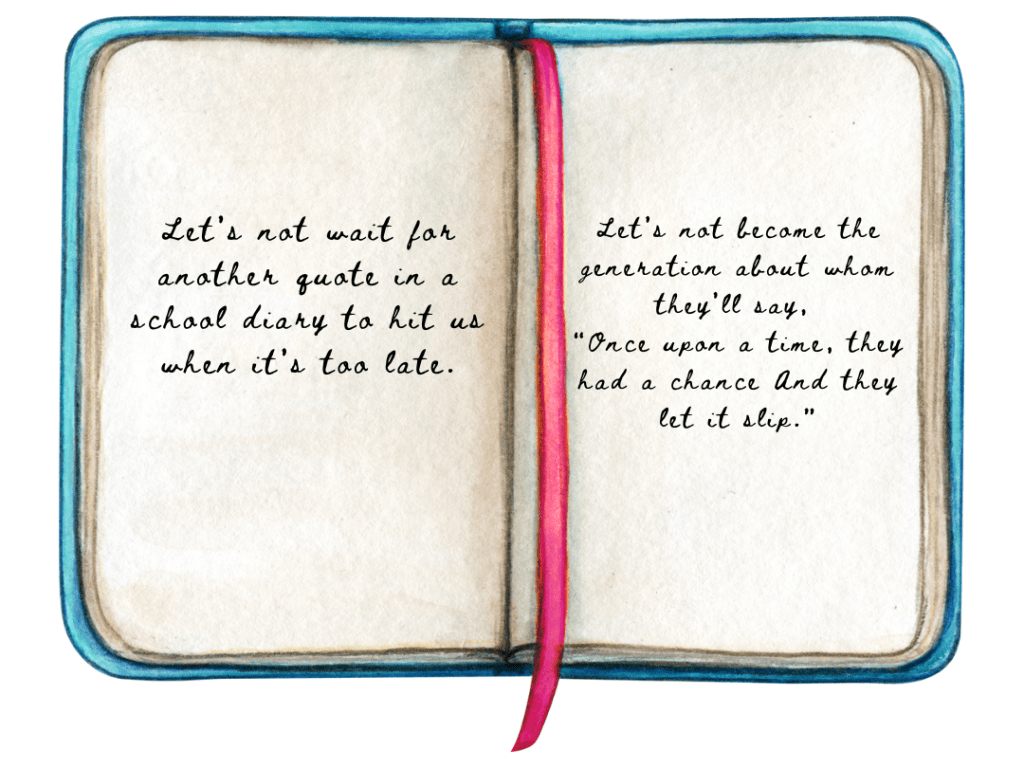 Let's not wait for
another quote in a
school diary to hit us
when it's too late.
Let's not become the
generation about whom
they'll say,
"Once upon a time, they
had a chance And they
let it slip."